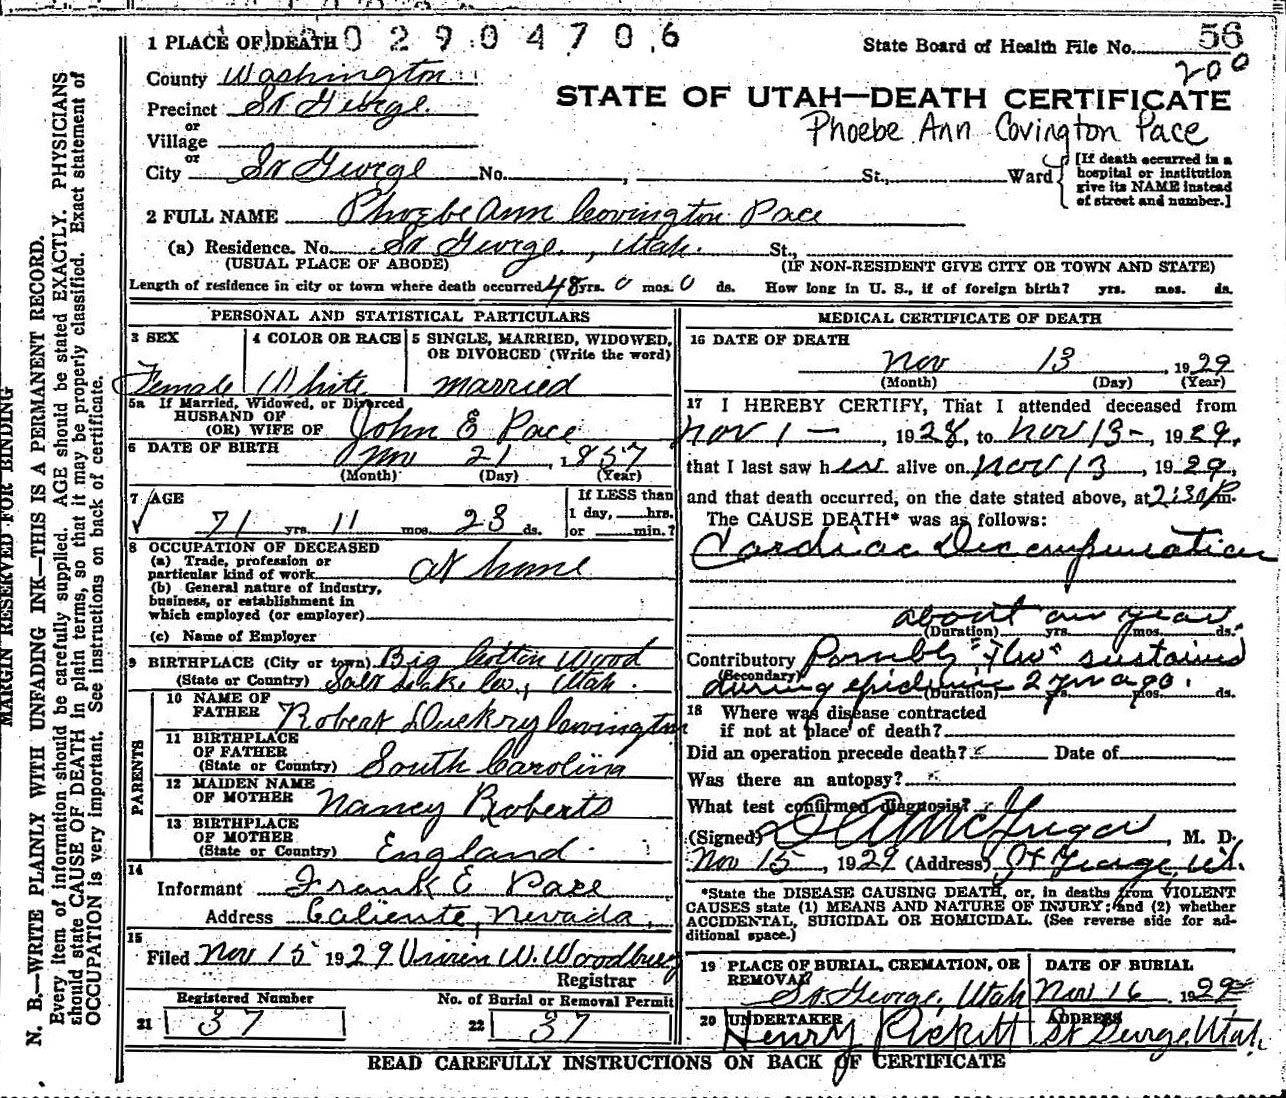 1 PLACE OF DEATH 0 2 9 0 4 7 0 6
State Board of Health File No. 56
200
County Washington
Precinct St George.
or
Village
or
City St George No. , St., Ward
[If death occurred in a
hospital or institution
give its NAME instead
of street and number.]
STATE OF UTAH—DEATH CERTIFICATE
Phoebe Ann Covington Pace
2 FULL NAME Phoebe Ann Covington Pace
(a) Residence. No. St George, Utah. St.,
(USUAL PLACE OF ABODE) (IF NON-RESIDENT GIVE CITY OR TOWN AND STATE)
Length of residence in city or town where death occurred 48 yrs. 0 mos. 0 ds. How long in U. S., if of foreign birth? yrs. mos. ds.
PERSONAL AND STATISTICAL PARTICULARS
3 SEX 4 COLOR OR RACE 5 SINGLE, MARRIED, WIDOWED,
OR DIVORCED (Write the word)
Female White married
5a If Married, Widowed, or Divorced
HUSBAND OF
(OR) WIFE OF John E Pace
6 DATE OF BIRTH 21, 1857
(Month) (Day) (Year)
7 AGE If LESS than
1 day, hrs.
71 yrs. 11 mos. 23 ds. or min.?
8 OCCUPATION OF DECEASED
(a) Trade, profession or
particular kind of work at home
(b) General nature of industry,
business, or establishment in
which employed (or employer)
(c) Name of Employer
9 BIRTHPLACE (City or town) Big Cotton Wood
(State or Country) Salt Lake Co., Utah.
PARENTS
10 NAME OF
FATHER Robert Duckry Covington
11 BIRTHPLACE
OF FATHER
(State or Country) South Carolina
12 MAIDEN NAME
OF MOTHER Nancy Roberts
13 BIRTHPLACE
OF MOTHER
(State or Country) England.
14
Informant Frank E Pace
Address Caliente, Nevada,
15
Filed Nov 15 1929 Vivien W. Woodbury
Registrar
Registered Number No. of Burial or Removal Permit
21 37 22 37
MEDICAL CERTIFICATE OF DEATH
16 DATE OF DEATH
Nov 13, 1929
(Month) (Day) (Year)
17 I HEREBY CERTIFY, That I attended deceased from
Nov 1 —, 1928, to Nov 13 -, 1929,
that I last saw her alive on Nov 13, 1929,
and that death occurred, on the date stated above, at 2:30 P m.
The CAUSE DEATH* was as follows:
Cardiac Decompensation
about an year
(Duration) yrs. mos. ds.
Contributory Possibly "Flu" sustained
(Secondary)
during epidemic 2 yrs ago.
(Duration) ds.
18 Where was disease contracted
if not at place of death?
Did an operation precede death? Date of
Was there an autopsy?
What test confirmed diagnosis?
(Signed) McGregor, M. D.
Nov 15, 1929 (Address) St George, Ut.
*State the DISEASE CAUSING DEATH, or, in deaths from VIOLENT
CAUSES state (1) MEANS AND NATURE OF INJURY; and (2) whether
ACCIDENTAL, SUICIDAL OR HOMICIDAL. (See reverse side for ad-
ditional space.)
19 PLACE OF BURIAL, CREMATION, OR
REMOVAL DATE OF BURIAL
St George, Utah Nov 16 1929
20 UNDERTAKER ADDRESS
Henry Pickett St George Utah.
READ CAREFULLY INSTRUCTIONS ON BACK OF CERTIFICATE
MARGIN RESERVED FOR BINDING
N. B.—WRITE PLAINLY WITH UNFADING INK—THIS IS A PERMANENT RECORD.
Every item of information should be carefully supplied. AGE should be stated EXACTLY. PHYSICIANS
should state CAUSE OF DEATH in plain terms, so that it may be properly classified. Exact statement of
OCCUPATION is very important. See instructions on back of certificate.